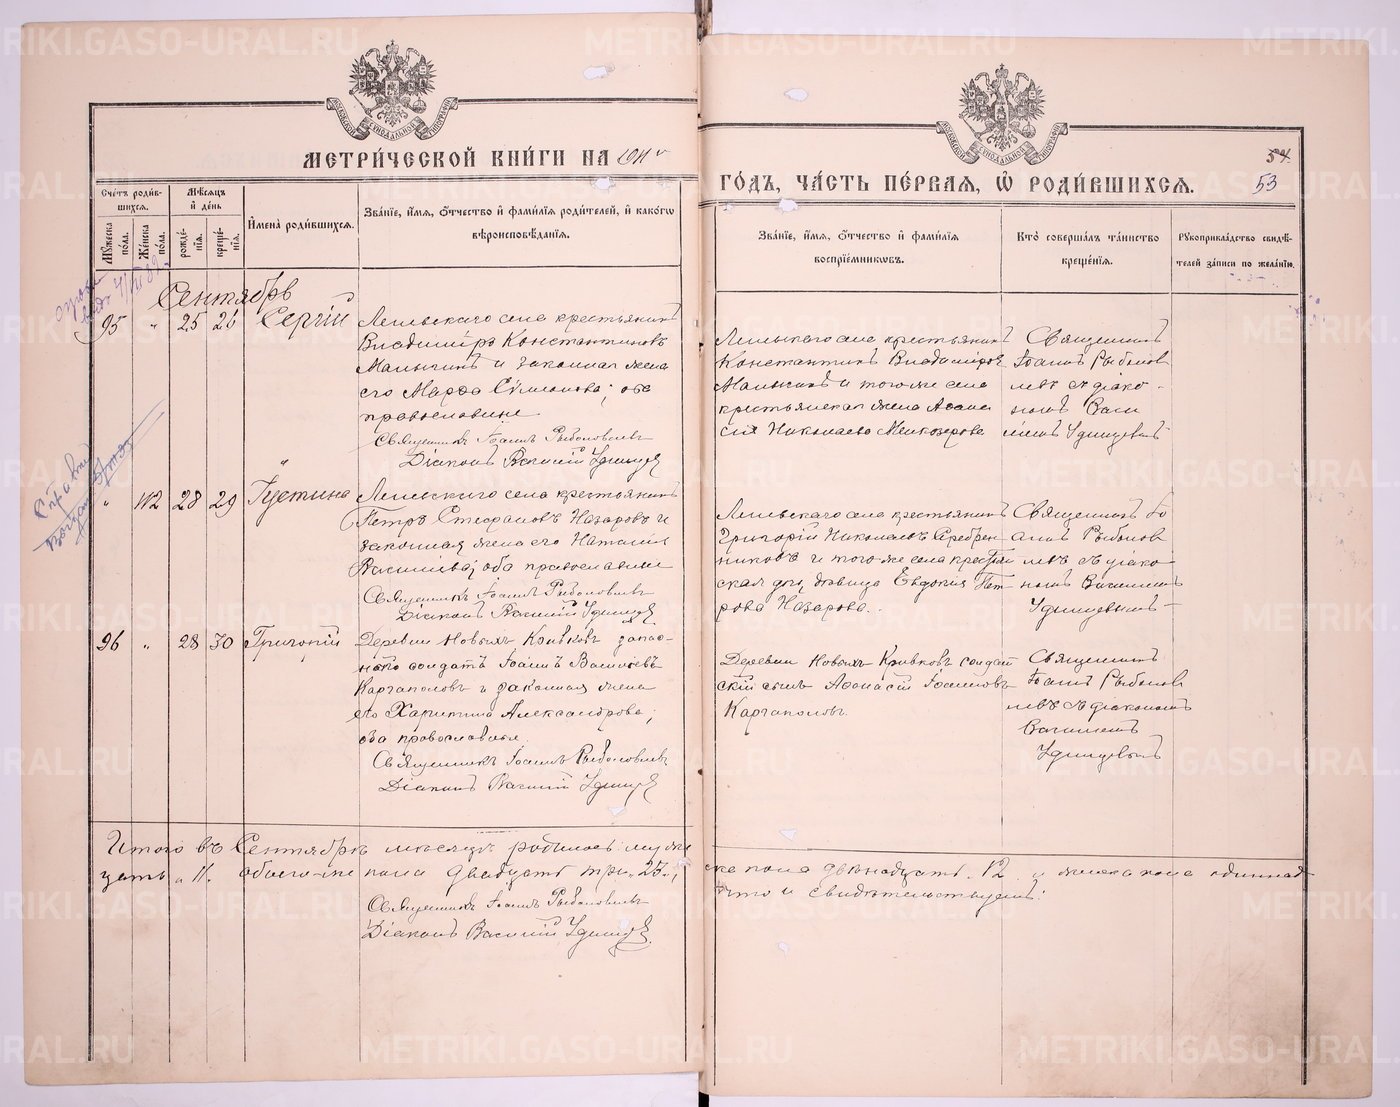 МЕТРИ́ЧЕСКОЙ КНИ́ГИ НА 1911
ГО́ДЪ, ЧА́СТЬ ПЕ́РВАЯ, Ѿ РОДИ́ВШИХСЯ.
54
53
Сче́тъ роди́в-
шихся.
Му́жеска по́ла.
Же́нска по́ла.
Мѣ́сяцъ
и҆ де́нь
рожде́-
нія.
креще́-
нія.
И҆мена̀ роди́вшихся.
Зва́ніе, и҆́мя, ѻ҆́тчество и҆ фами́лія роди́телей, и҆ како́гѡ
вѣроисповѣ́данія.
Зва́ніе, и҆́мя, ѻ҆́тчество и҆ фами́лія
воспріе́мникѡвъ.
Кто̀ соверша́лъ та́инство
креще́нія.
Рукоприкла́дство свидѣ́-
телей за́писи по жела́нію.
Сентябрь
95 " 25 26 Сергій
села крестьянинъ
Владиміръ Константиновъ
и законная жена
его Марѳа; оба
православные
Священникъ Іоаннъ Рыболовлевъ
Діаконъ Василій Удинцевъ
села крестьянинъ
Константинъ Владиміровъ
и того-же села
крестьянская жена
Николаева
Священникъ
Іоаннъ Рыболов
левъ съ діако-
номъ Васи
ліемъ Удинцевымъ
" 112 28 29 Іустина
села крестьянинъ
Петръ Стефановъ Назаровъ и
законная жена его Наталія
Васильева; оба православные
Священникъ Іоаннъ Рыболовлевъ
Діаконъ Василій Удинцевъ
села крестьянинъ
Григорій Николаевъ Серебрен
никовъ и того-же села крестьян
ская дочь девица Евдокія Пет
рова Назарова.
Священникъ Іо
аннъ Рыболов
левъ съ діако-
номъ Василіемъ
Удинцевымъ
96 " 28 30 Григорій
Деревни Новыхъ Кривковъ запас-
ный солдатъ Іоаннъ Васильевъ
Каргаполовъ и законная жена
его Харитина Александрова;
оба православные.
Священникъ Іоаннъ Рыболовлевъ
Діаконъ Василій Удинцевъ
Деревни Новыхъ Кривковъ солдат
скій сынъ Аѳанасій Іоанновъ
Каргаполовъ.
Священникъ
Іоаннъ Рыболов
левъ съ діакономъ
Василіемъ
Удинцевымъ
Итого въ Сентябрѣ месяце родилось: муже
ска пола двѣнадцать 12 и женска пола одиннад
цать " 11. обоего-же пола двадцать три " 23.,
что и свидѣтельствуемъ:
Священникъ Іоаннъ Рыболовлевъ
Діаконъ Василій Удинцевъ
METRIKI.GASO-URAL.RU